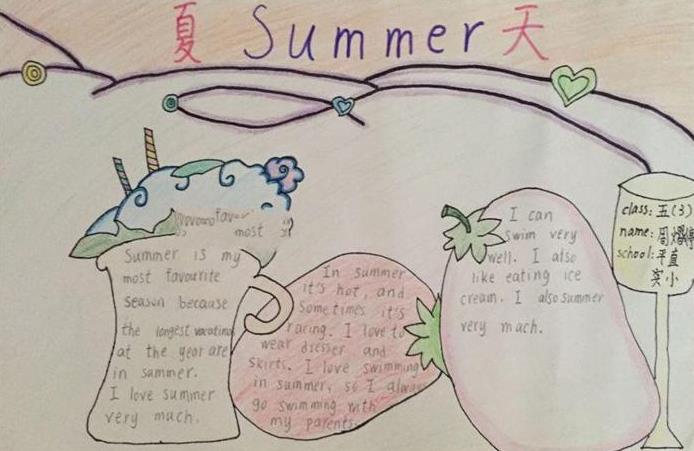 夏 Summer 天
most
Summer is my
most favourite
season because
the longest vacation
at the year are
in summer.
I love summer
very mach.
In summer
it's hot, and
Sometimes it's
racing. I love to
wear dresser and
skirts. I love swimming
in summer, so I always
go swimming with
my parents.
I can
Swim very
well. I also
like eating ice
cream. I also summer
very mach.
class: 五(3)
name: 周
school: 平直
实小